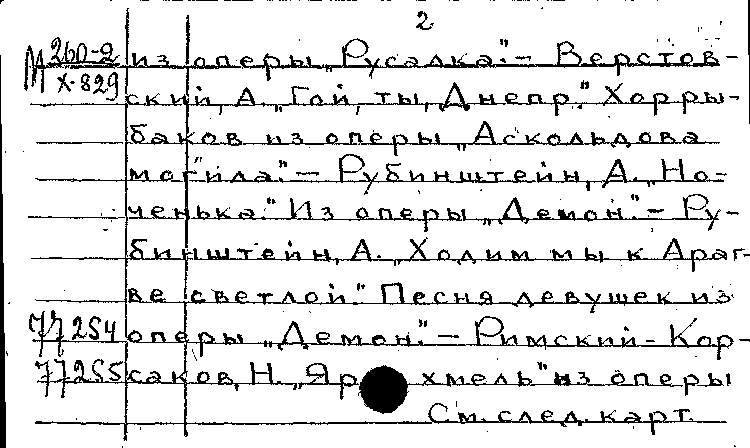 2
М 260-2 из оперы „Русалка".- Верстов-
х-829
ский, А. „Гой, ты, Днепр." Хор ры-
баков из оперы „Аскольдова
могила".- Рубинштейн, А. „Но-
ченька." Из оперы „Демон".- Ру-
бинштейн, А. „Ходим мы к Араг-
ве светлой." Песня девушек из
77254 оперы „Демон".- Римский-Кор-
77255 саков, Н. „Яр хмель" из оперы
См. след. карт.